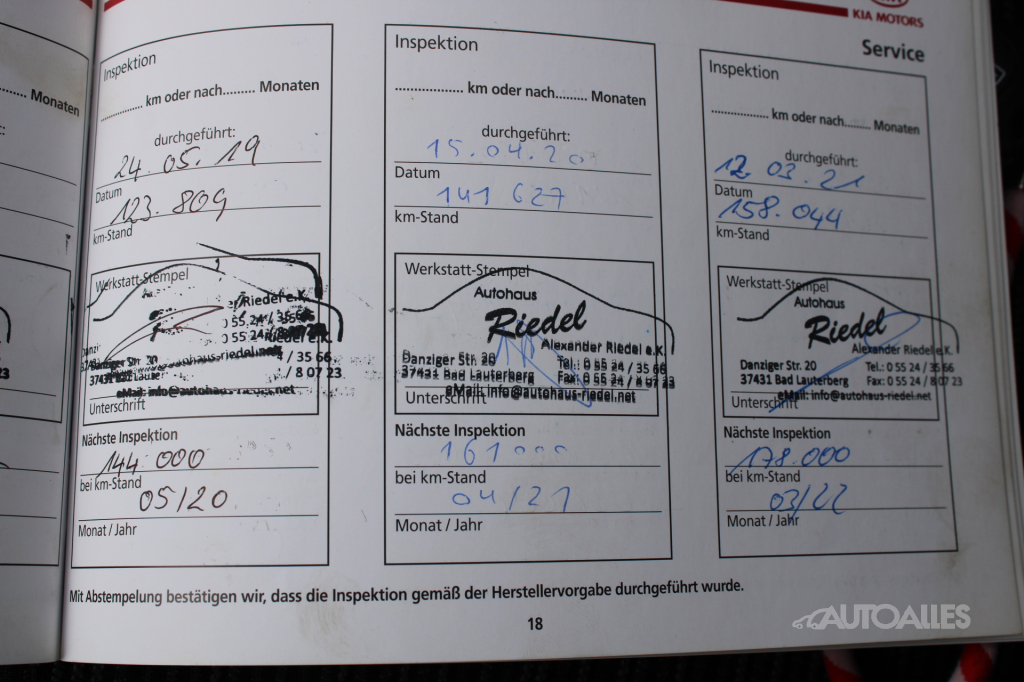 KIA MOTORS
Service
Monaten
Inspektion
.................. km oder nach......... Monaten
durchgeführt:
24.05.19
Datum
123.809
km-Stand
Werkstatt-Stempel
Riedel e.K.
0 55 24 / 35 66
Danziger Str. 20
37431 Bad Lauterberg
/ 8 07 23
eMail: info@autohaus-riedel.net
Unterschrift
Nächste Inspektion
144 000
bei km-Stand
05/20
Monat / Jahr
Inspektion
.................. km oder nach......... Monaten
durchgeführt:
15.04.20
Datum
141 627
km-Stand
Werkstatt-Stempel
Autohaus
Riedel
Alexander Riedel e.K.
Danziger Str. 20 Tel.: 0 55 24 / 35 66
37431 Bad Lauterberg Fax: 0 55 24 / 8 07 23
eMail: info@autohaus-riedel.net
Unterschrift
Nächste Inspektion
161 000
bei km-Stand
04/21
Monat / Jahr
Inspektion
.................. km oder nach......... Monaten
durchgeführt:
12.03.21
Datum
158.044
km-Stand
Werkstatt-Stempel
Autohaus
Riedel
Alexander Riedel e.K.
Danziger Str. 20 Tel.: 0 55 24 / 35 66
37431 Bad Lauterberg Fax: 0 55 24 / 8 07 23
eMail: info@autohaus-riedel.net
Unterschrift
Nächste Inspektion
178.000
bei km-Stand
03/22
Monat / Jahr
Mit Abstempelung bestätigen wir, dass die Inspektion gemäß der Herstellervorgabe durchgeführt wurde.
18
AUTOALLES